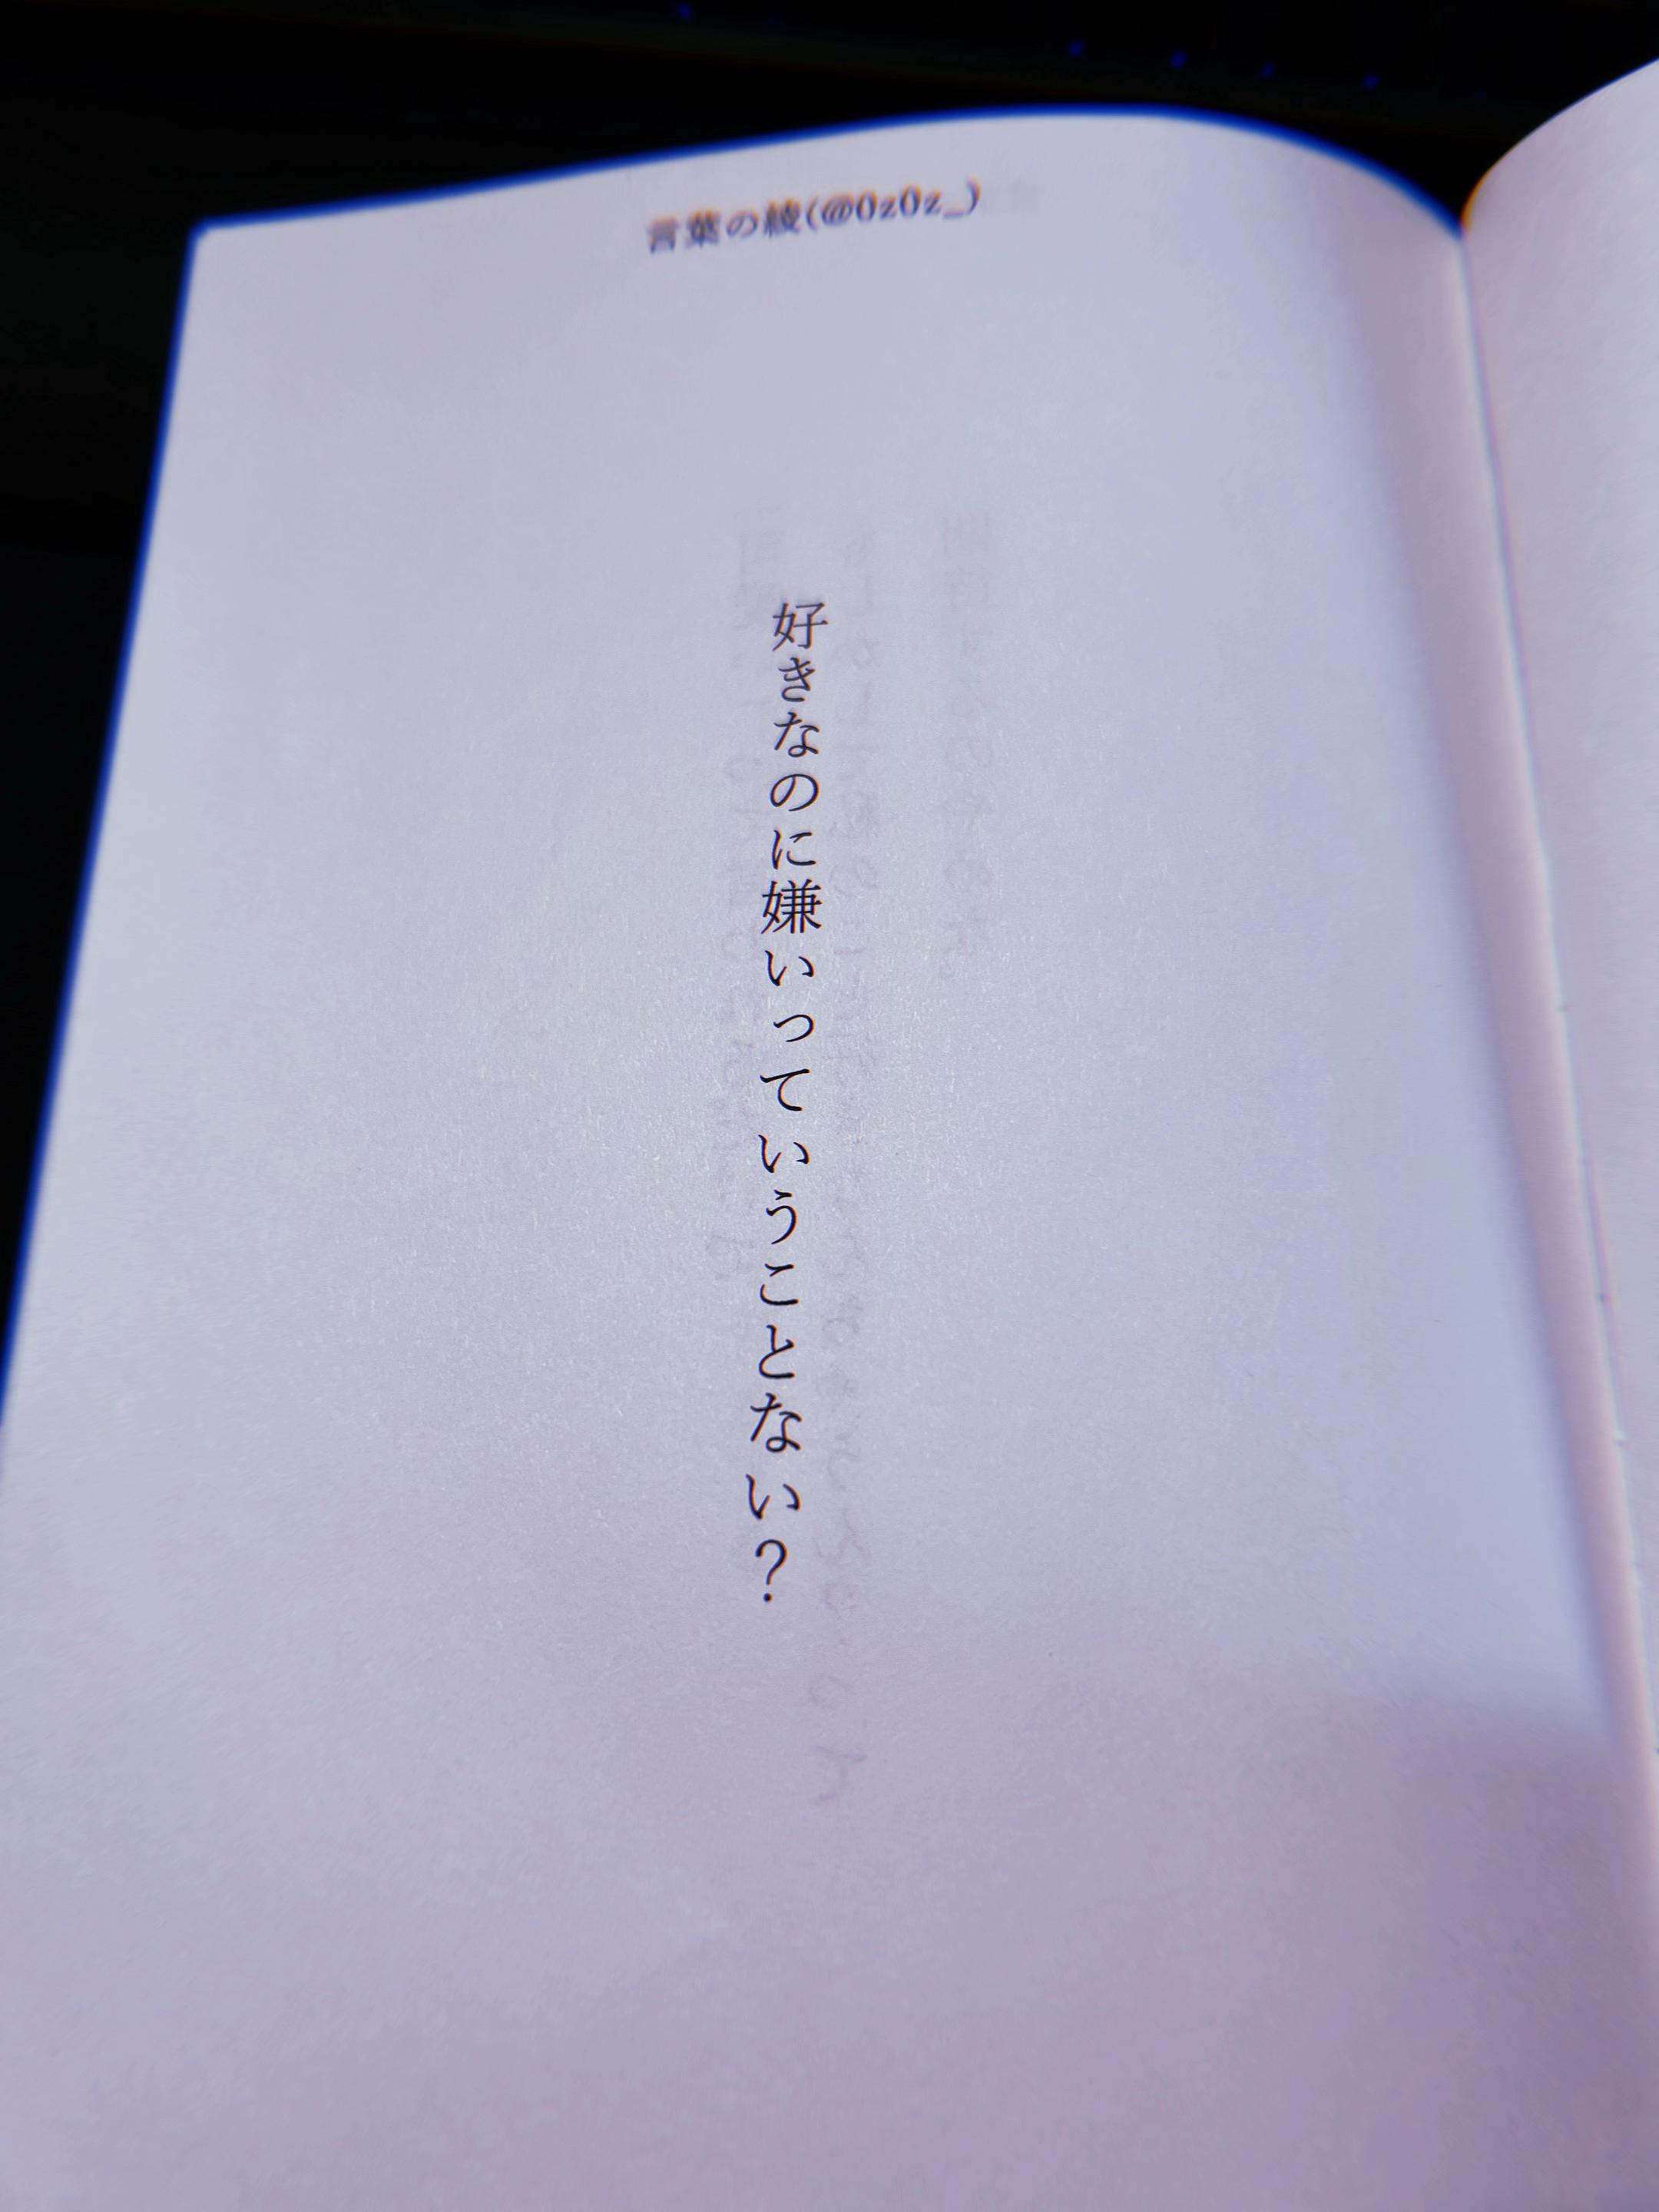 言葉の綾(@0z0z_)
好きなのに嫌いっていうことない？